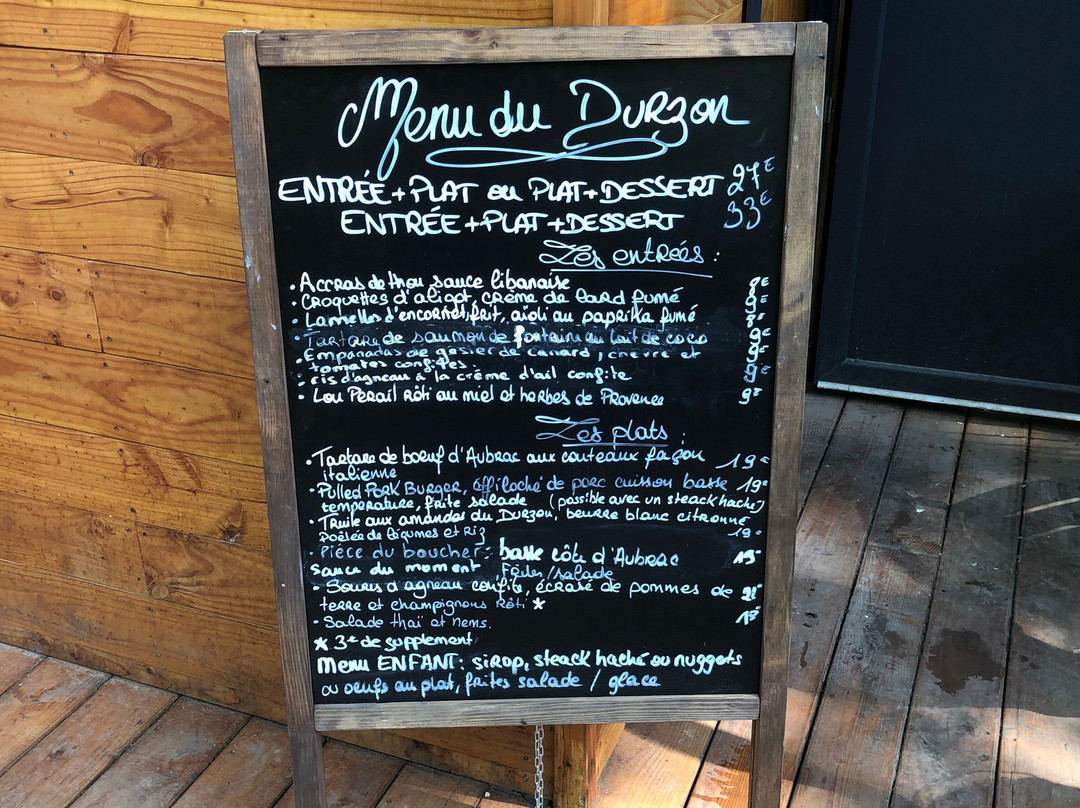 Menu du Durzon
ENTRÉE+PLAT ou PLAT+DESSERT 27€
ENTRÉE+PLAT+DESSERT 33€
Les entrées :
• Accras de thon sauce libanaise 9€
• Croquettes d'aligot, crème de lard fumé 9€
• Lamelles d'encornet frit, aïoli au paprika fumé 9€
• Tartare de saumon de fontaine au lait de coco 9€
• Empanadas de gésier de canard, chèvre et 9€
tomates confites.
• ris d'agneau à la crème d'ail confite 9€
• Lou Perail Rôti au miel et herbes de Provence 9€
Les plats :
• Tartare de boeuf d'Aubrac aux couteaux façon 19€
italienne
• Pulled Pork Burger, effiloché de porc cuisson basse 19€
température, frite salade (possible avec un steack haché)
• Truite aux amandes du Durzon, beurre blanc citronné
Poêlée de légumes et Riz 19€
• Pièce du boucher : basse côte d'Aubrac 19€
sauce du moment, frites/salade
• Souris d'agneau confite, écrasé de pommes de 21€
terre et champignons Rôti *
• Salade thaï et nems. 19€
* 3€ de supplement
Menu ENFANT : sirop, steack haché ou nuggets
ou oeufs au plat, frites salade / glace